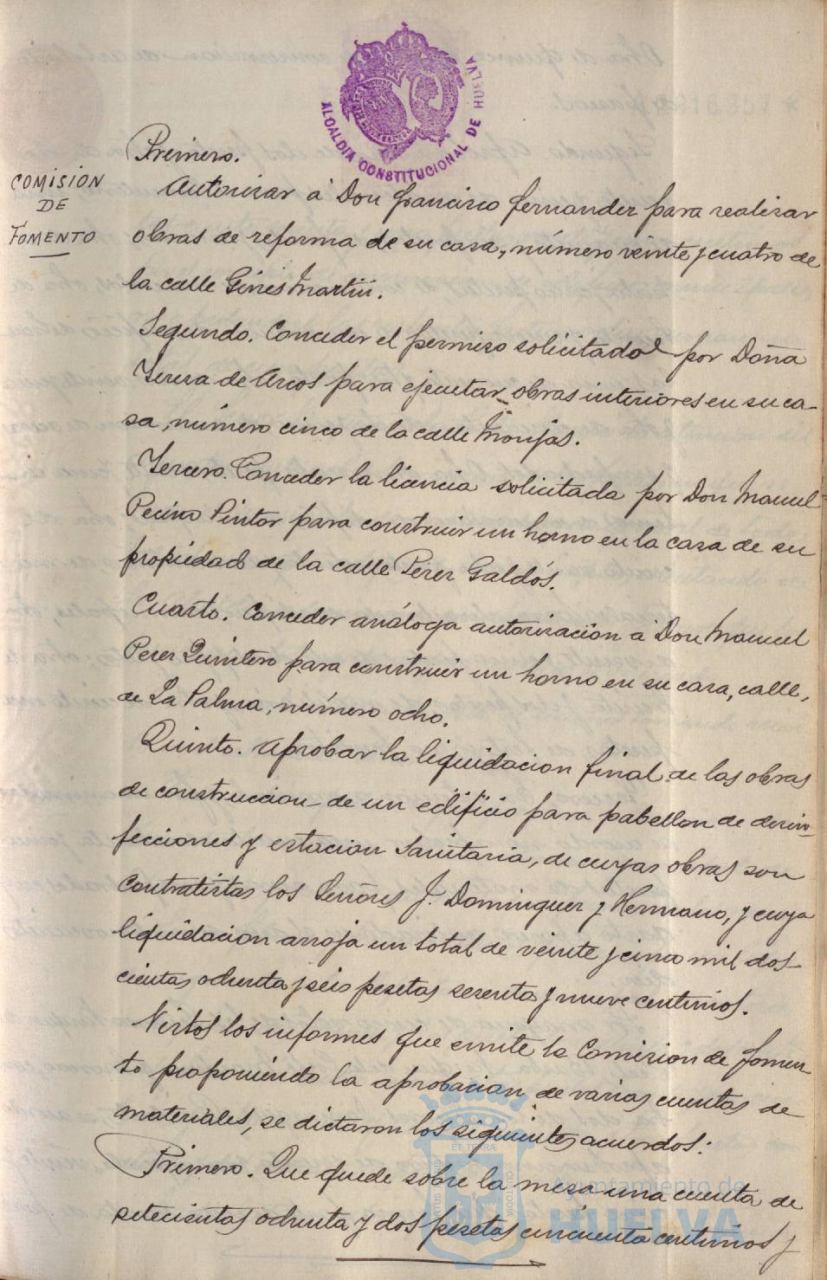 ALCALDIA CONSTITUCIONAL DE HUELVA
COMISION
DE
FOMENTO
Primero.
Autorizar á Don Francisco Fernandez para realizar
obras de reforma de su casa, número veinte y cuatro de
la calle Ginés Martín.
Segundo. Conceder el permiso solicitado por Doña
Teresa de Arcos para ejecutar obras interiores en su ca-
sa, número cinco de la calle Monjas.
Tercero. Conceder la licencia solicitada por Don Manuel
Pecino Pintor para construir un horno en la casa de su
propiedad de la calle Pérez Galdós.
Cuarto. Conceder análoga autorización á Don Manuel
Perez Quintero para construir un horno en su casa, calle,
de La Palma, número ocho.
Quinto. Aprobar la liquidacion final de las obras
de construccion de un edificio para pabellon de desin-
fecciones y estacion Sanitaria, de cuyas obras son
contratistas los Señores J. Dominguez y Hermano, y cuya
liquidacion arroja un total de veinte y cinco mil dos-
cientas ochenta y seis pesetas sesenta y nueve centimos.
Vistos los informes que emite la Comision de fomen-
to proponiendo la aprobacion de varias cuentas de
materiales, se dictaron los siguientes acuerdos:
Primero. Que quede sobre la mesa una cuenta de
setecientas ochenta y dos pesetas cincuenta centimos y
Ayuntamiento de
HUELVA